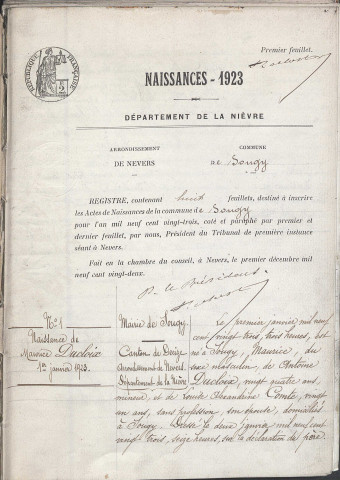 Premier feuillet.
RÉPUBLIQUE FRANÇAISE
NAISSANCES - 1923
DÉPARTEMENT DE LA NIÈVRE
ARRONDISSEMENT
DE NEVERS
COMMUNE
de Sougy
REGISTRE, contenant huit feuillets, destiné à inscrire
les Actes de Naissances de la commune de Sougy
pour l'an mil neuf cent vingt-trois, coté et paraphé par premier et
dernier feuillet, par nous, Président du Tribunal de première instance
séant à Nevers.
Fait en la chambre du conseil, à Nevers, le premier décembre mil
neuf cent vingt-deux.
P. le Président.
N° 1
Naissance de
Maurice Ducloix
1er janvier 1923.
Mairie de Sougy
Canton de Decize
Arrondissement de Nevers
Département de la Nièvre
Le premier janvier mil neuf
cent vingt trois, trois heures, est
né à Sougy, Maurice, du
sexe masculin, de Antoine
Ducloix, vingt quatre ans,
mineur, et de Louise Alexandrine Comte, vingt
un ans, sans profession, son épouse, domiciliés
à Sougy. Dressé le deux janvier mil neuf cent
vingt trois, seize heures, sur la déclaration du père.